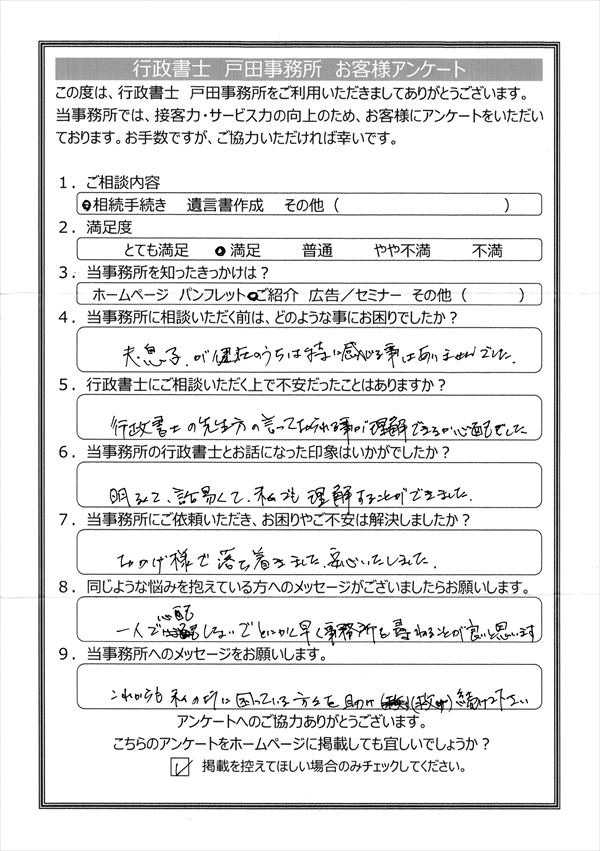 行政書士 戸田事務所 お客様アンケート
この度は、行政書士 戸田事務所をご利用いただきましてありがとうございます。
当事務所では、接客力・サービス力の向上のため、お客様にアンケートをいただい
ております。お手数ですが、ご協力いただければ幸いです。
1．ご相談内容
相続手続き 遺言書作成 その他（ ）
2．満足度
とても満足 満足 普通 やや不満 不満
3．当事務所を知ったきっかけは？
ホームページ パンフレット ご紹介 広告／セミナー その他（ ）
4．当事務所に相談いただく前は、どのような事にお困りでしたか？
夫、息子、が健在のうちは特に感じる事はありませんでした。
5．行政書士にご相談いただく上で不安だったことはありますか？
行政書士の先生方の言っておられる事が理解できるか心配でした
6．当事務所の行政書士とお話になった印象はいかがでしたか？
明るくて、話易くて、私でも理解することができました。
7．当事務所にご依頼いただき、お困りやご不安は解決しましたか？
おかげ様で落ち着きました、安心いたしました。
8．同じような悩みを抱えている方へのメッセージがございましたらお願いします。
一人で心配しないでとにかく早く事務所を尋ねることが良いと思います
9．当事務所へのメッセージをお願いします。
これからも私の様に困っている方々を助け(救け)続けて下さい
アンケートへのご協力ありがとうございます。
こちらのアンケートをホームページに掲載しても宜しいでしょうか？
掲載を控えてほしい場合のみチェックしてください。